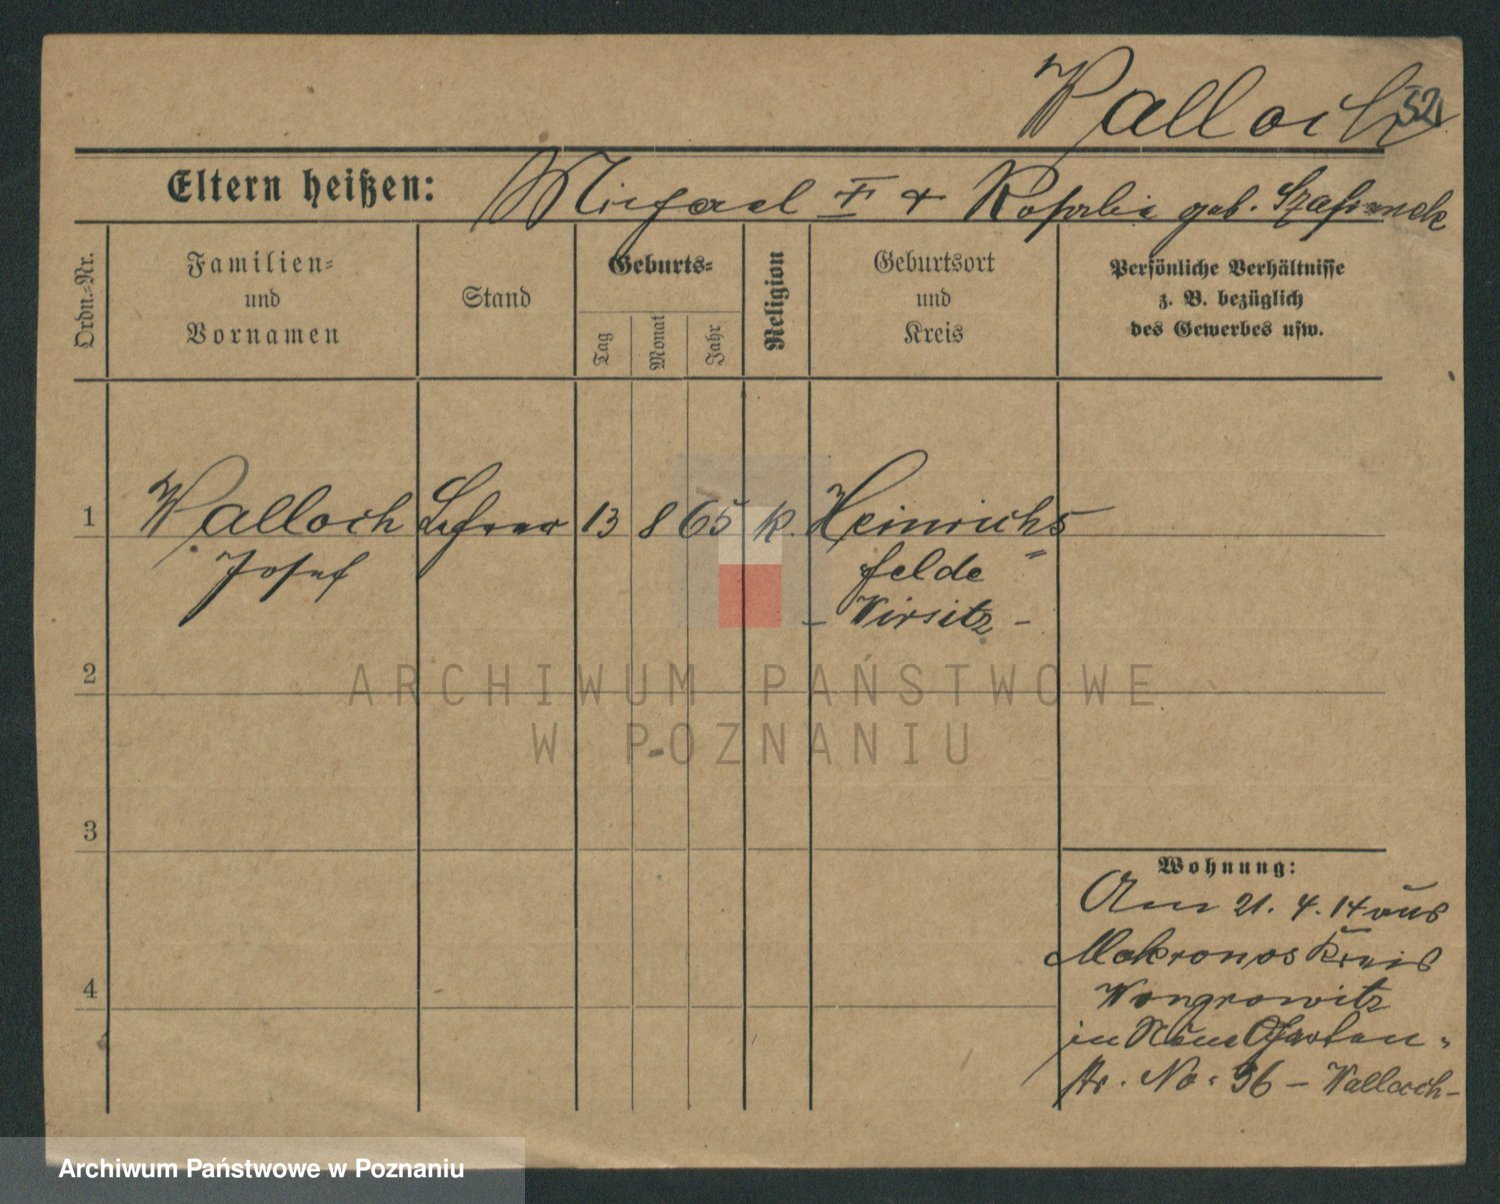 Walloch
52
Eltern heißen: Michael † + Rosalie geb. Szafranek
Ordn.-Nr.
Familien-
und
Vornamen
Stand
Geburts-
Tag
Monat
Jahr
Religion
Geburtsort
und
Kreis
Persönliche Verhältnisse
z. B. bezüglich
des Gewerbes usw.
1 Walloch Lehrer 13 8 65 k. Heinrichs
Josef felde
- Wirsitz -
2
3
4
Wohnung:
Am 21. 4. 14 aus
Mokronos Kreis
Wongrowitz
in Neue Garten-
str. No: 36 - Walloch -
ARCHIWUM PAŃSTWOWE
W POZNANIU
Archiwum Państwowe w Poznaniu